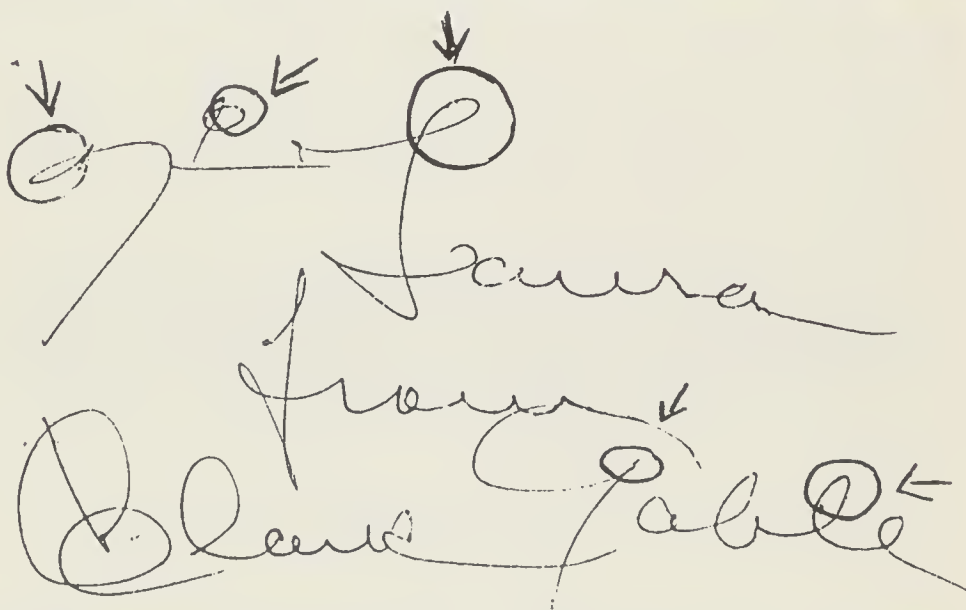 To Laura
from
Clark Gable